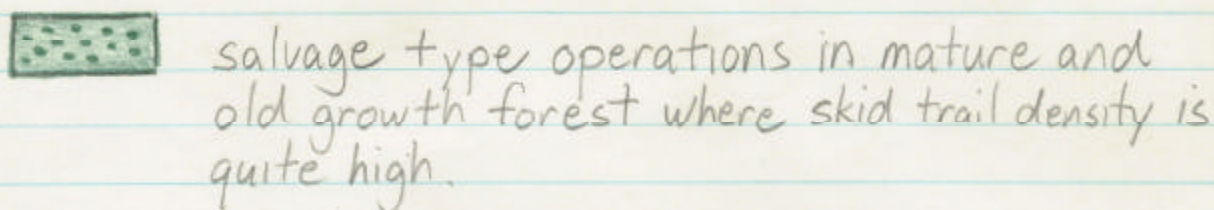 salvage type operations in mature and
old growth forest where skid trail density is
quite high.